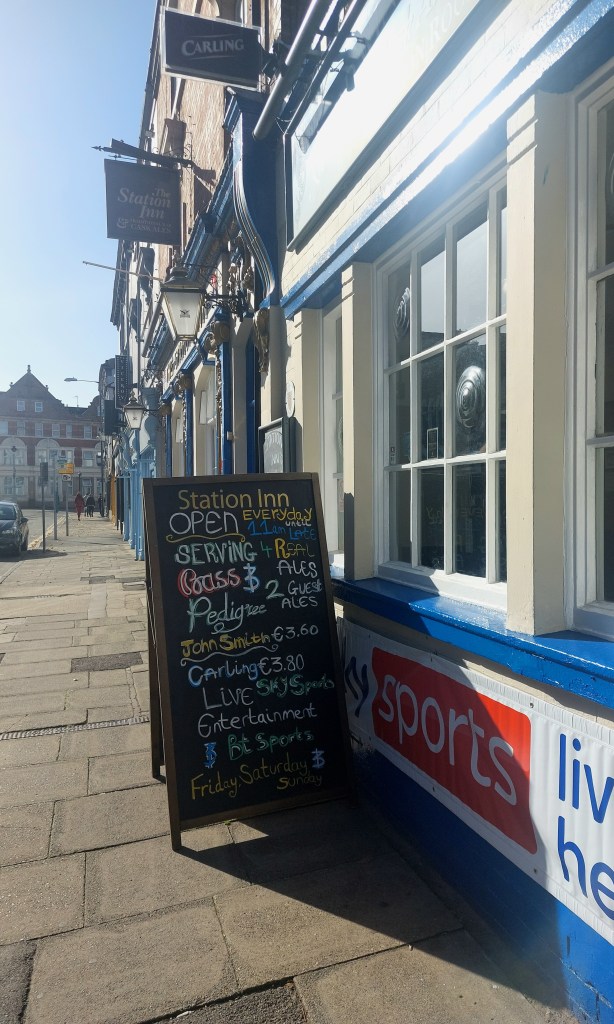 CARLING
The
Station
Inn
&
Station Inn
OPEN EVERYDAY
11am until LATE
SERVING 4 REAL
ALES
Bass &
Pedigree 2 GUEST
ALES
John Smith €3.60
Carling €3.80
LIVE Sky Sports
Entertainment
Bt Sports
Friday. Saturday
Sunday
sports
liv
he